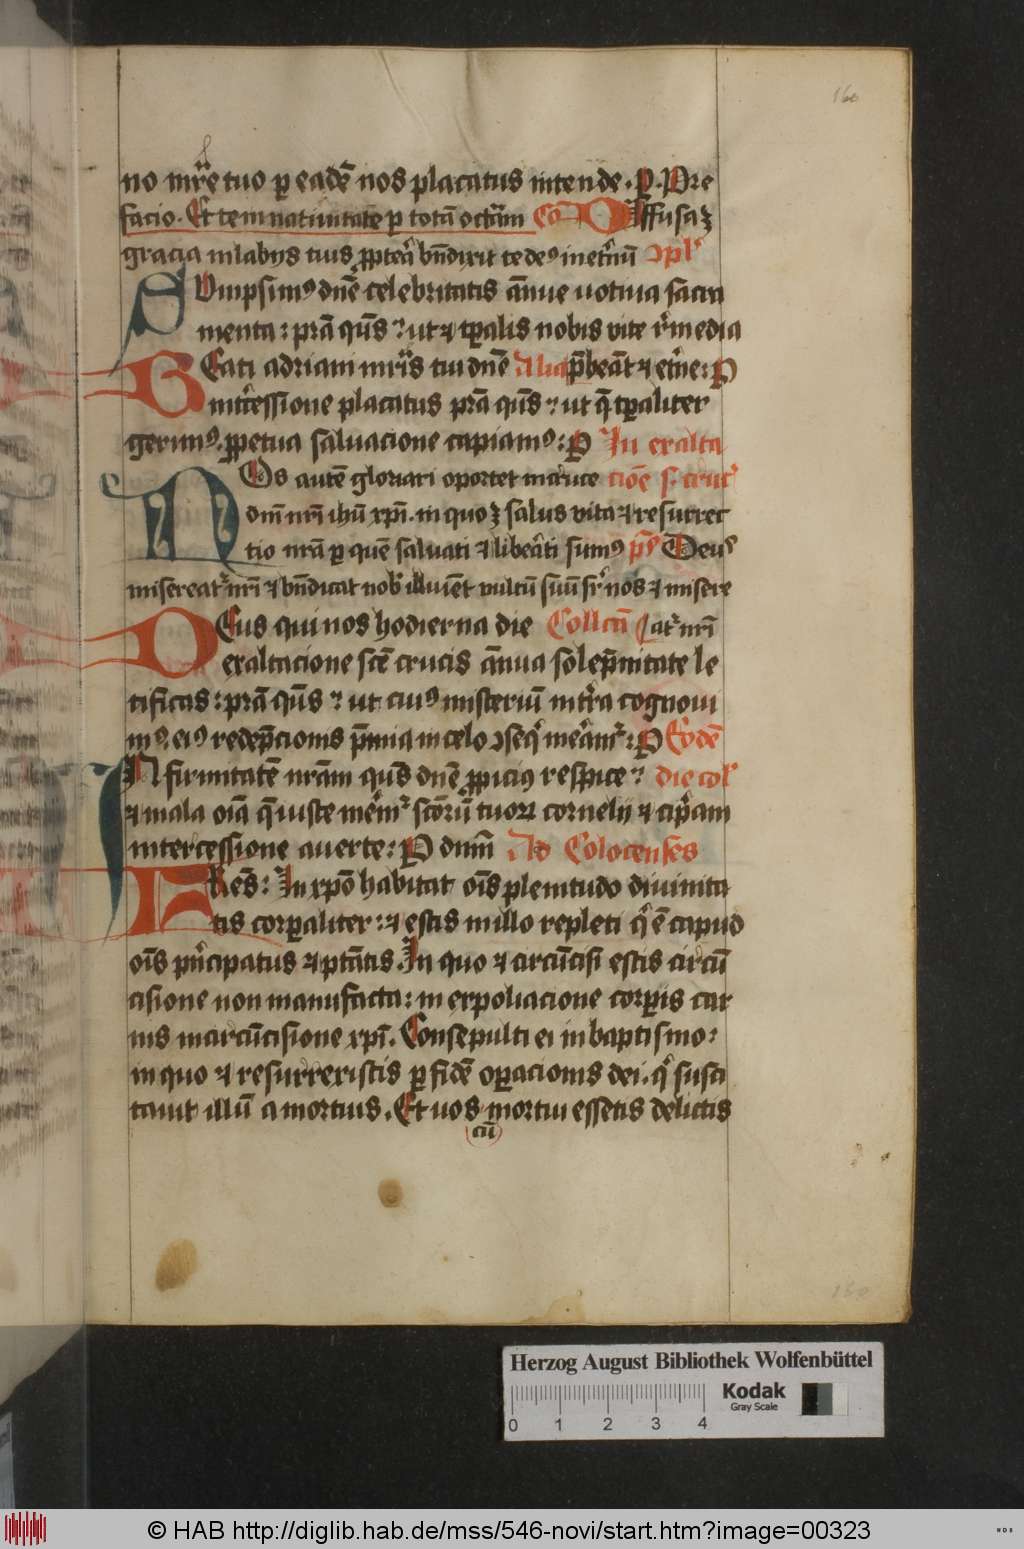 160
no mr̄e tuo ꝑ eadē nos placatus intende. P̲. Pre
facio. Et tem natiuitate ꝑ totā octām Cō Diffusa ꝫ
gracia in labijs tuis ꝓpteā bn̄dixit te deꝰ in et̄nū ↄpl̄
Sumpsimꝰ dn̄e celebritatis ānue uotiua sacra
menta: prā qūs ut ⁊ tꝑalis nobis vite r̄media
Beati adriani mr̄is tui dn̄e Alia p̄beāt ⁊ et̄ne: P
int̄cessione placatus prā qūs ut q̄ tꝑaliter
gerimꝰ ꝑpetua saluacione capiamꝰ: P In exalta
Nos autē gloriari oportet in cruce cioē s. cruc̄
dn̄i nr̄i ihū xp̄i. in quo ꝫ salus vita ⁊ resurrec
tio nrā ꝑ quē saluati ⁊ libeāti sumꝰ ps̄ Deus
misereat᷑ nr̄i ⁊ bn̄dicat nob̄ illuiēt vultū suū sr̄ nos ⁊ misere
Deus qui nos hodierna die Collcā at᷑ nr̄i
exaltacione scē crucis ānua solēpnitate le
tificas: prā qūs ut cuiꝰ misteriū in tr̄ra cognoui
mꝰ. eiꝰ redēpcionis p̄mia in celo ↄseq̄ meām᷑: P Eodē
Infirmitatē nrām qūs dn̄e ꝓpiciꝰ respice die col̄
⁊ mala oīa q̄ iuste mēm᷑ scōrū tuoꝝ cornelij ⁊ cip̄iani
intercessione auerte: P dnm̄ Ad Colocenses
Fres̄: In xp̄o habitat oīs plenitudo diuinita
tis corꝑaliter: ⁊ estis in illo repleti q̄ ē capud
oīs pn̄cipatus ⁊ ptātis. In quo ⁊ circūcisi estis circū
cisione non manufacta: in expoliacione corꝑis car
nis in circūcisione xp̄i. Consepulti ei in baptismo:
in quo ⁊ resurrexistis ꝑ fidē oꝑacionis dei. q̄ susci
tauit illū a mortuis. Et uos mortui essetis delictis
cū
160
Herzog August Bibliothek Wolfenbüttel
Kodak
Gray Scale
0 1 2 3 4
© HAB http://diglib.hab.de/mss/546-novi/start.htm?image=00323